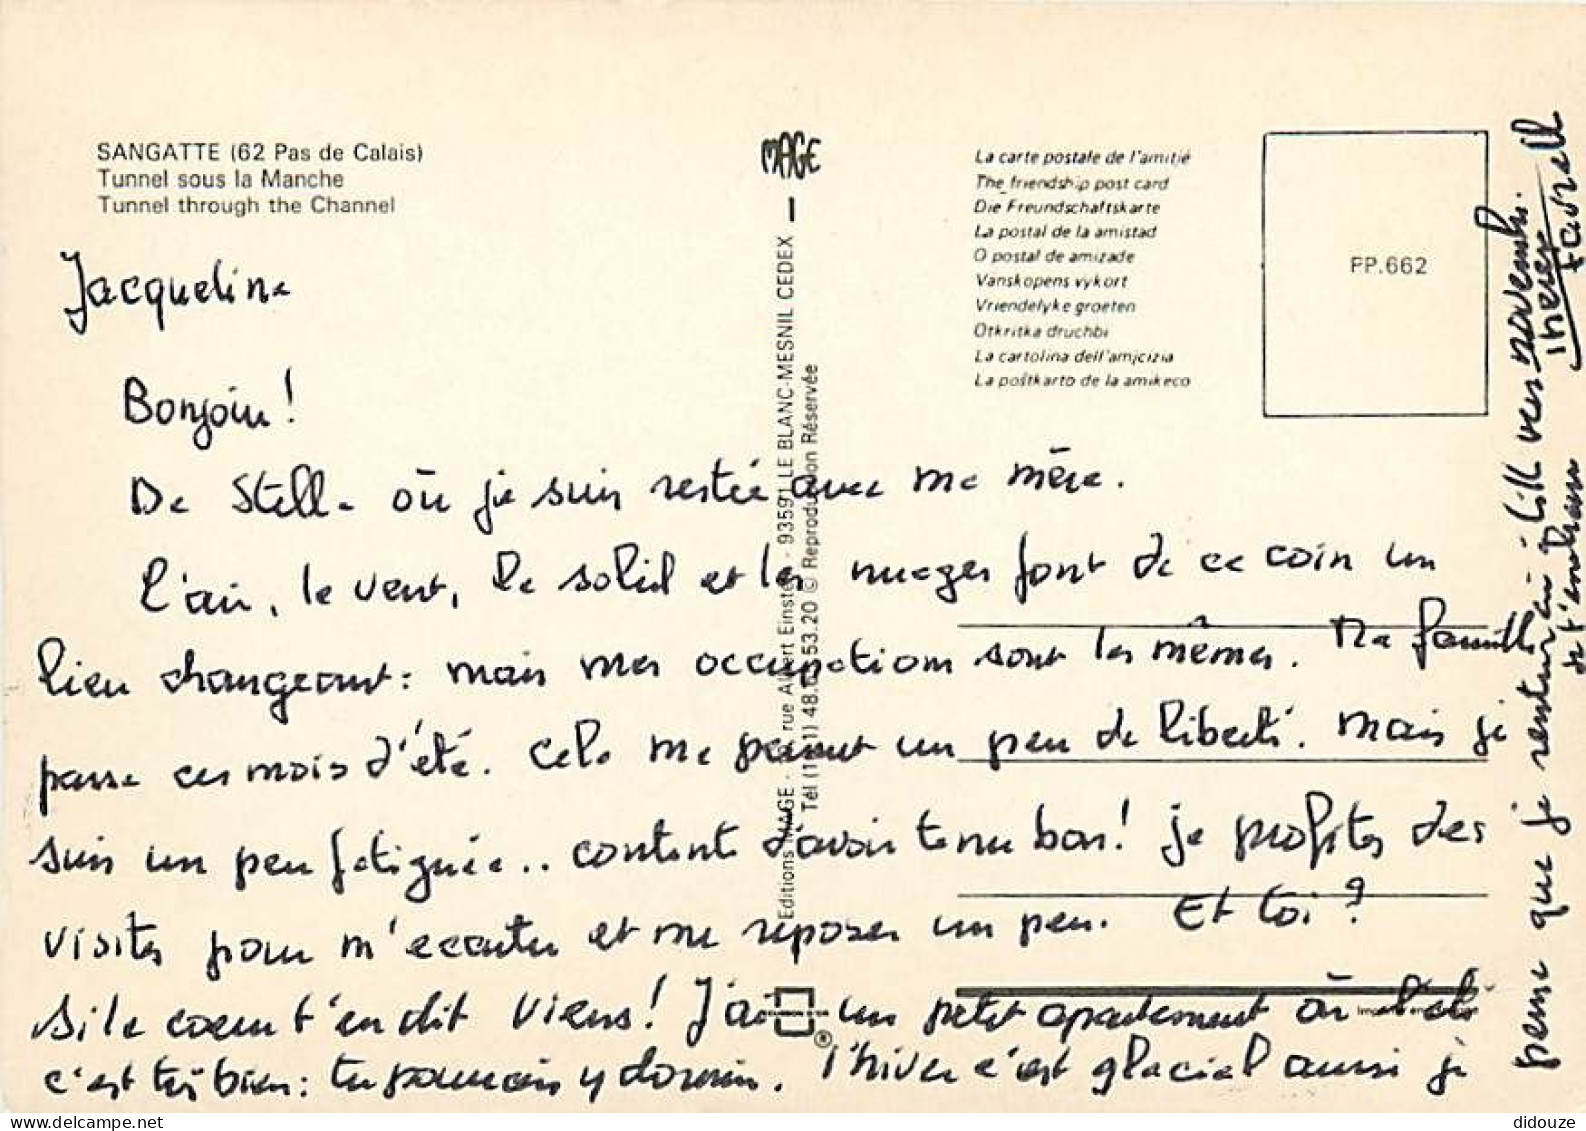 SANGATTE (62 Pas de Calais)
Tunnel sous la Manche
Tunnel through the Channel
MAGE
La carte postale de l'amitié
The friendship post card
Die Freundschaftskarte
La postal de la amistad
O postal de amizade
Vanskopens vykort
Vriendelyke groeten
Otkritka druchbi
La cartolina dell'amjcizia
La poŝtkarto de la amikeco
PP.662
Editions MAGE - rue Albert Einstein - 93591 LE BLANC-MESNIL CEDEX
Tél (1) 48. 53.20 © Reproduction Réservée
Jacqueline
Bonjour!
De Stella où je suis restée avec ma mère.
L'air, le vent, le soleil et les nuages font de ce coin un
lieu changeant : mais mes occupations sont les mêmes. Ma famille
passe ces mois d'été. Cela me permet un peu de liberté. Mais je
suis un peu fatiguée.. contente d'avoir tenu bon! Je profite des
visites pour m'écarter et me reposer un peu. Et toi?
Si le coeur t'en dit viens! J'ai un petit appartement où l'été
c'est très bien : tu pourrais y dormir. L'hiver c'est glacial aussi je
pense que je rentrerai à Lille vers novembre.
de t'embrasse
®
didouze